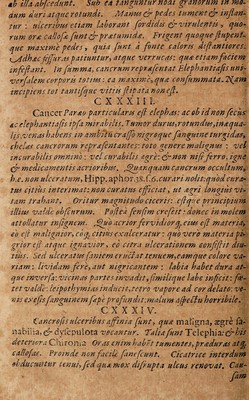 ab illa abscedunt. Sub ea tanguntur nodi granorum in mo-
dum aut atque rotundi. Manus & pedes tument & fundan-
tur: ulceribus etiam laborant sordidis & virulentis, quo-
rum ora callosa sunt & prætumida. Frigent quoque stupent-
que maxime pedes, quia sunt à fonte caloris distantiores.
Adhæc fissuras patiuntur, atque verrucas: quæ etiam faciem
infestant. In summa, cancrum repræsentat Elephantiasis uni-
versalem corporis totius: ea maximè, quæ consummata. Nam
incipiens tot tantisque vitiis stipata non est.
CXXXIII.
Cancer Paræo particularis est elephas: at ob id non secus
ac elephantiasis ipsa mirabilis. Tumor durus, rotundus, inæqua-
lis, venas habens in ambitu crasso nigroque sanguine turgidas,
chelas cancrorum repræsentantes: toto genere malignus: vel
incurabilis omnino: vel curabilis ægrè: & non nisi ferro, igne
& medicamentis acrioribus. Quanquam cancrum occultum,
hæc non ulceratum, Hippo. aphor. 38. s. 6. curari nolit: quod cura-
tus citiùs interimat: non curatus efficiat, ut ægri longiùs vi-
tam trahant. Oritur magnitudo ciceris: estque principium
illius valde obscurum. Postea sensim crescit: donec in molem
attollatur insignem. Quo acrior fervidiorq; cum est materia,
eò est malignior, eò q; citiùs exulceratur: quo verò materia pi-
grior est atque ignavior, eò citra ulcerationem consistit diu-
tiùs. Sed ulceratus saniem eructat tenuem, eamque colore va-
riam: lividam ferè, aut nigricantem: labia habet dura at-
que inversa: vicinas partes inquinat, similique labe inficit: fœ-
tet valde: leipothymias inducit, tetro vapore ad cor delato: ve-
nis exesis sanguinem sæpe profundit: malum aspectu horribile.
CXXXIV.
Cancrosis ulceribus affinia sunt, quæ maligna, ægrè sa-
nabilia, & dysepulota vocantur. Talia sunt Telephia & his
deteriora Chironia. Oras enim habet tumentes, præduras atq;
callosas. Proinde non facilè sanescunt. Cicatrice interdum
obducuntur tenui, sed quæ mox disrupta ulcus renovat. Cau-
sam